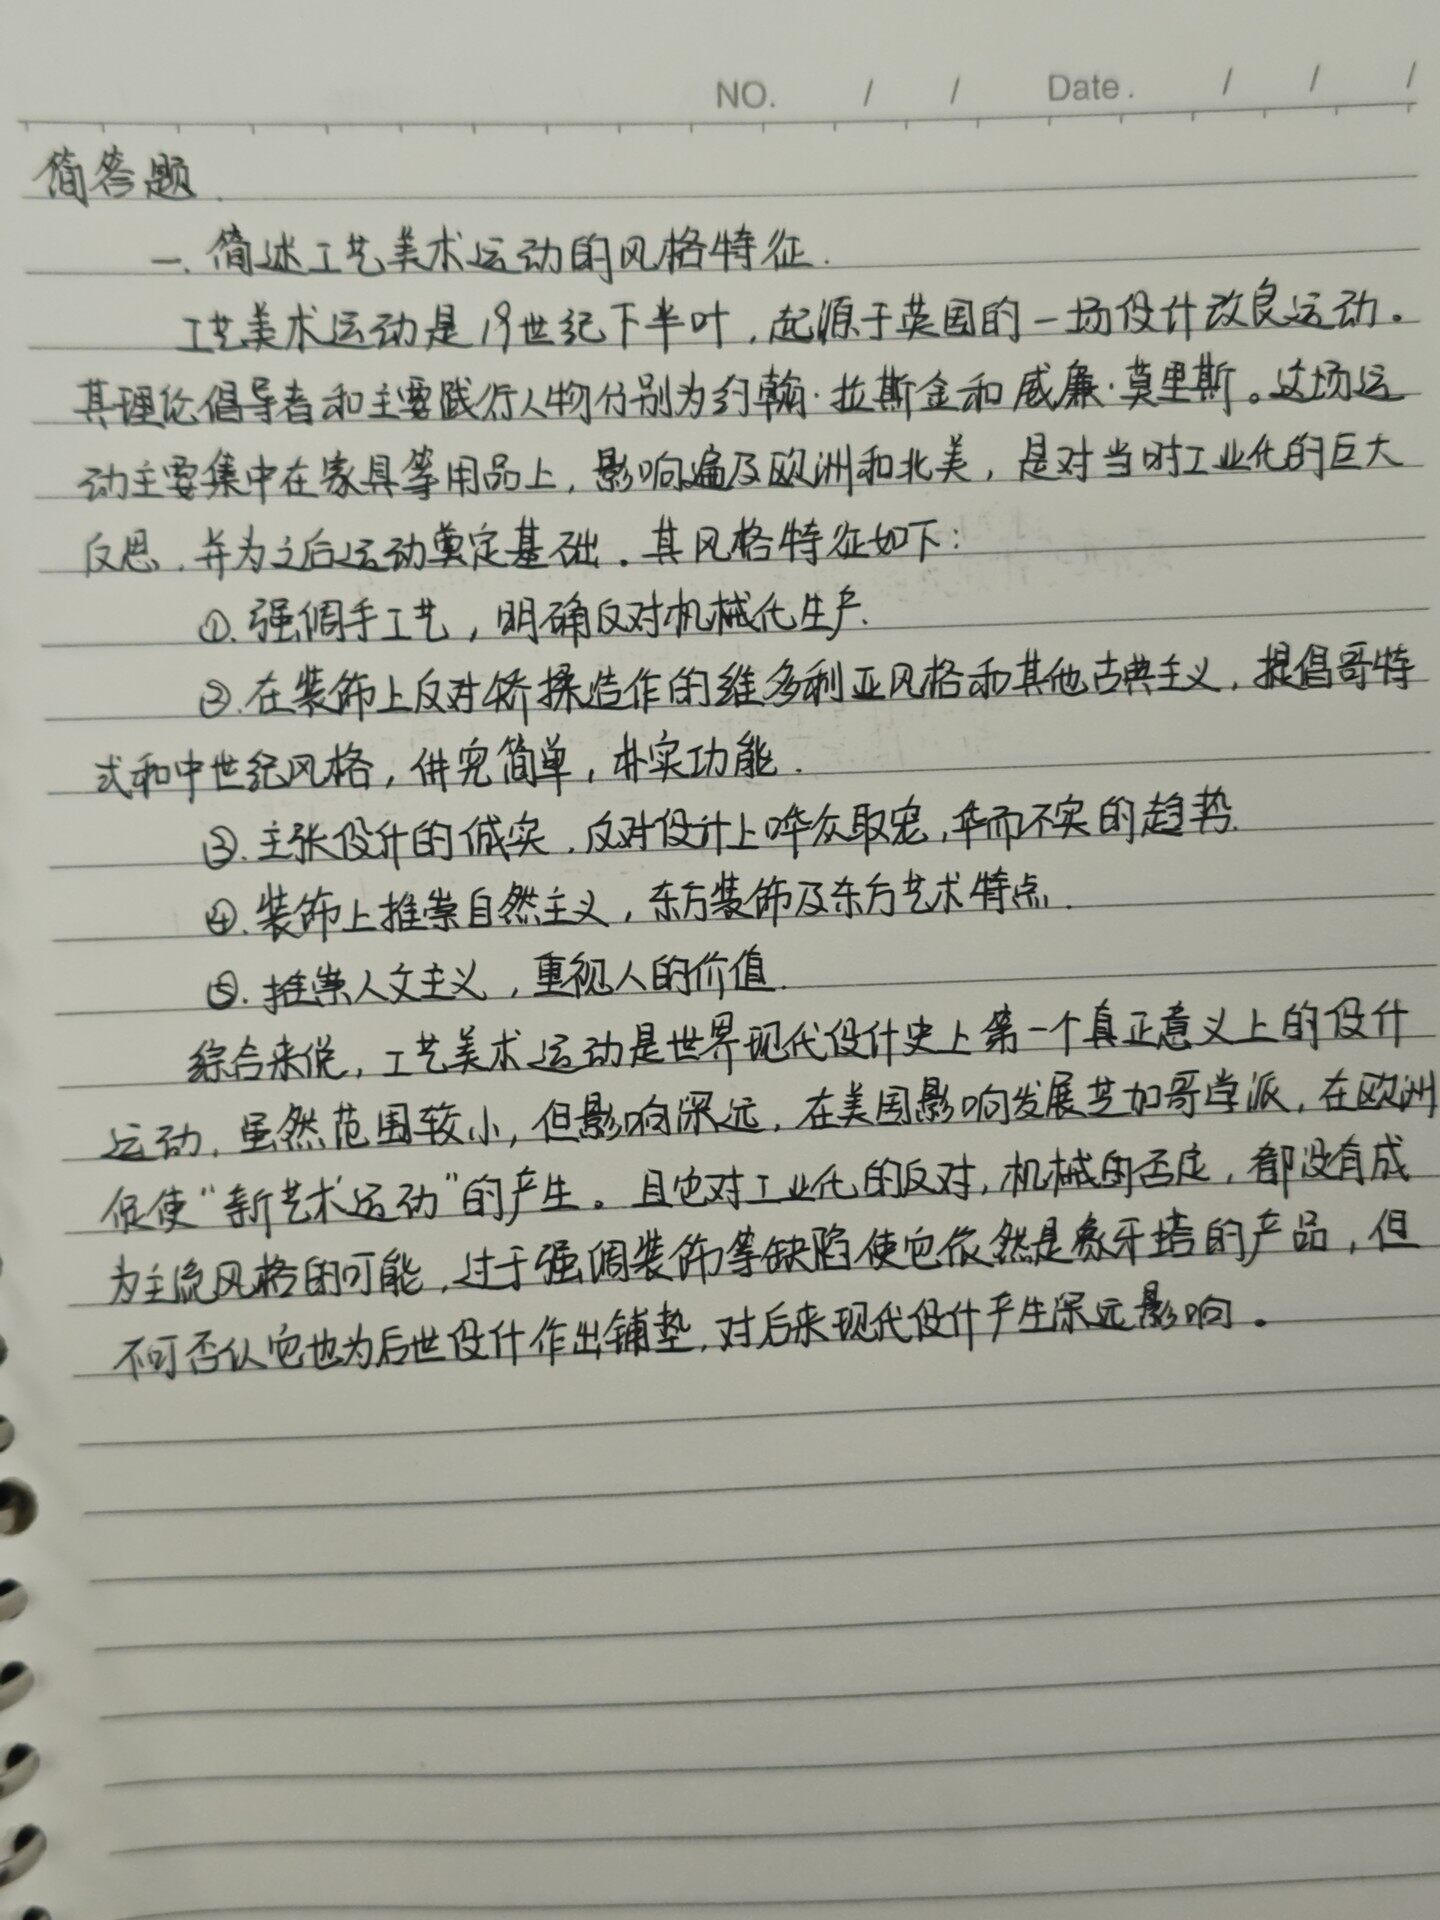 NO. / / Date. / / /
简答题.
一. 简述工艺美术运动的风格特征.
工艺美术运动是19世纪下半叶，起源于英国的一场设计改良运动。
其理论倡导者和主要践行人物分别为约翰·拉斯金和威廉·莫里斯。这场运
动主要集中在家具等用品上，影响遍及欧洲和北美，是对当时工业化的巨大
反思，并为之后运动奠定基础。其风格特征如下：
①.强调手工艺，明确反对机械化生产.
②.在装饰上反对矫揉造作的维多利亚风格和其他古典主义，提倡哥特
式和中世纪风格，讲究简单，朴实功能.
③.主张设计的诚实，反对设计上哗众取宠，华而不实的趋势.
④.装饰上推崇自然主义，东方装饰及东方艺术特点.
⑤.推崇人文主义，重视人的价值.
综合来说，工艺美术运动是世界现代设计史上第一个真正意义上的设计
运动，虽然范围较小，但影响深远，在美国影响发展芝加哥学派，在欧洲
促使“新艺术运动”的产生。且它对工业化的反对，机械的否定，都没有成
为主流风格的可能，过于强调装饰等缺陷使它依然是象牙塔的产品，但
不可否认它也为后世设计作出铺垫，对后来现代设计产生深远影响。